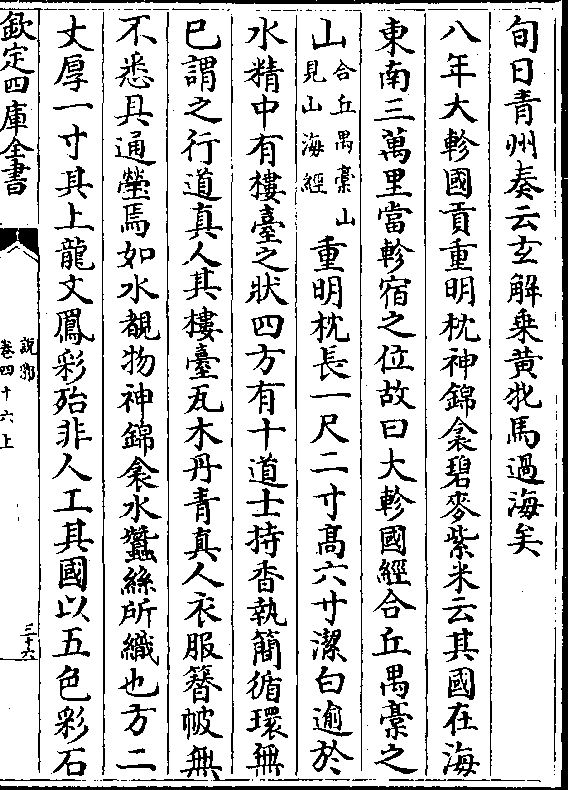 旬日青州奏云玄解乗黄牝馬過海矣
八年大軫國貢重明枕神錦衾碧麥紫米云其國在海
東南三萬里當軫宿之位故曰大軫國經合丘禺槀之
山合丘禺槀山見山海經重明枕長一尺二寸髙六寸潔白逾於
水精中有樓臺之狀四方有十道士持香執簡循環無
已謂之行道真人其樓臺瓦木丹青真人衣服簪帔無
不悉具通瑩焉如水覩物神錦衾水蠶絲所織也方二
丈厚一寸其上龍文鳳彩殆非人工其國以五色彩石
欽定四庫全書
說郛
卷四十六上
三十六